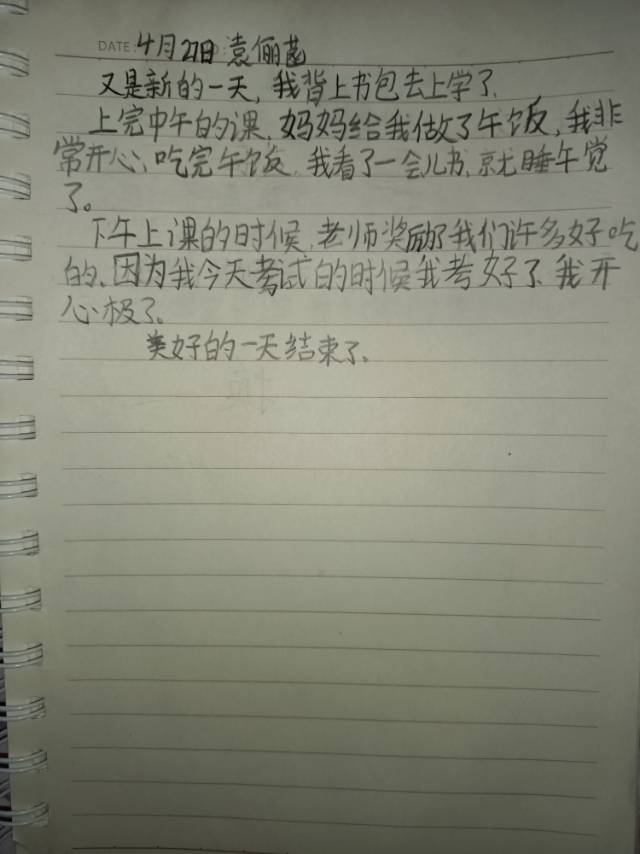 DATE: 4月27日 袁俪菡
又是新的一天，我背上书包去上学了.
上完中午的课，妈妈给我做了午饭，我非
常开心，吃完午饭，我看了一会儿书，就睡午觉
了。
下午上课的时候，老师奖励了我们许多好吃
的、因为我今天考试的时候我考好了，我开
心极了。
美好的一天结束了、